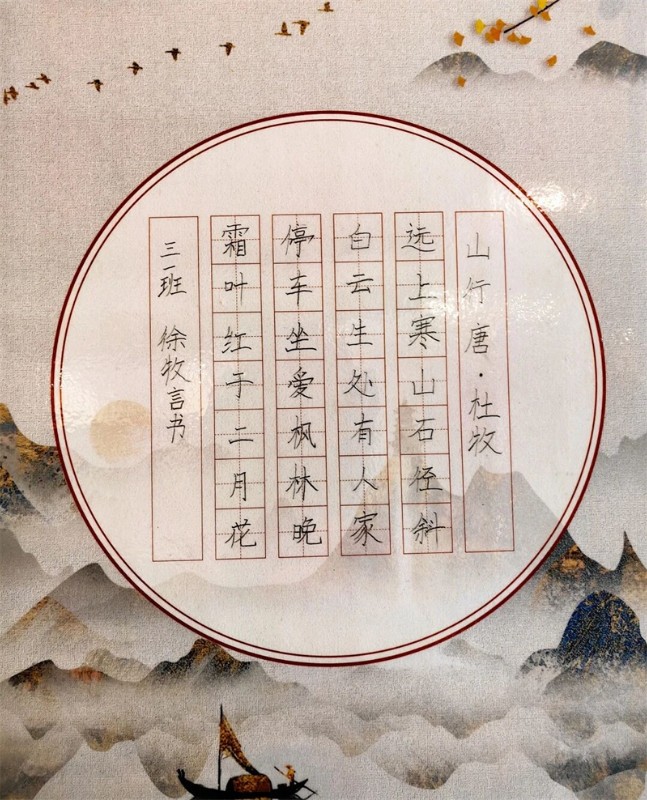 山行 唐·杜牧
远上寒山石径斜
白云生处有人家
停车坐爱枫林晚
霜叶红于二月花
三一班 徐牧言书